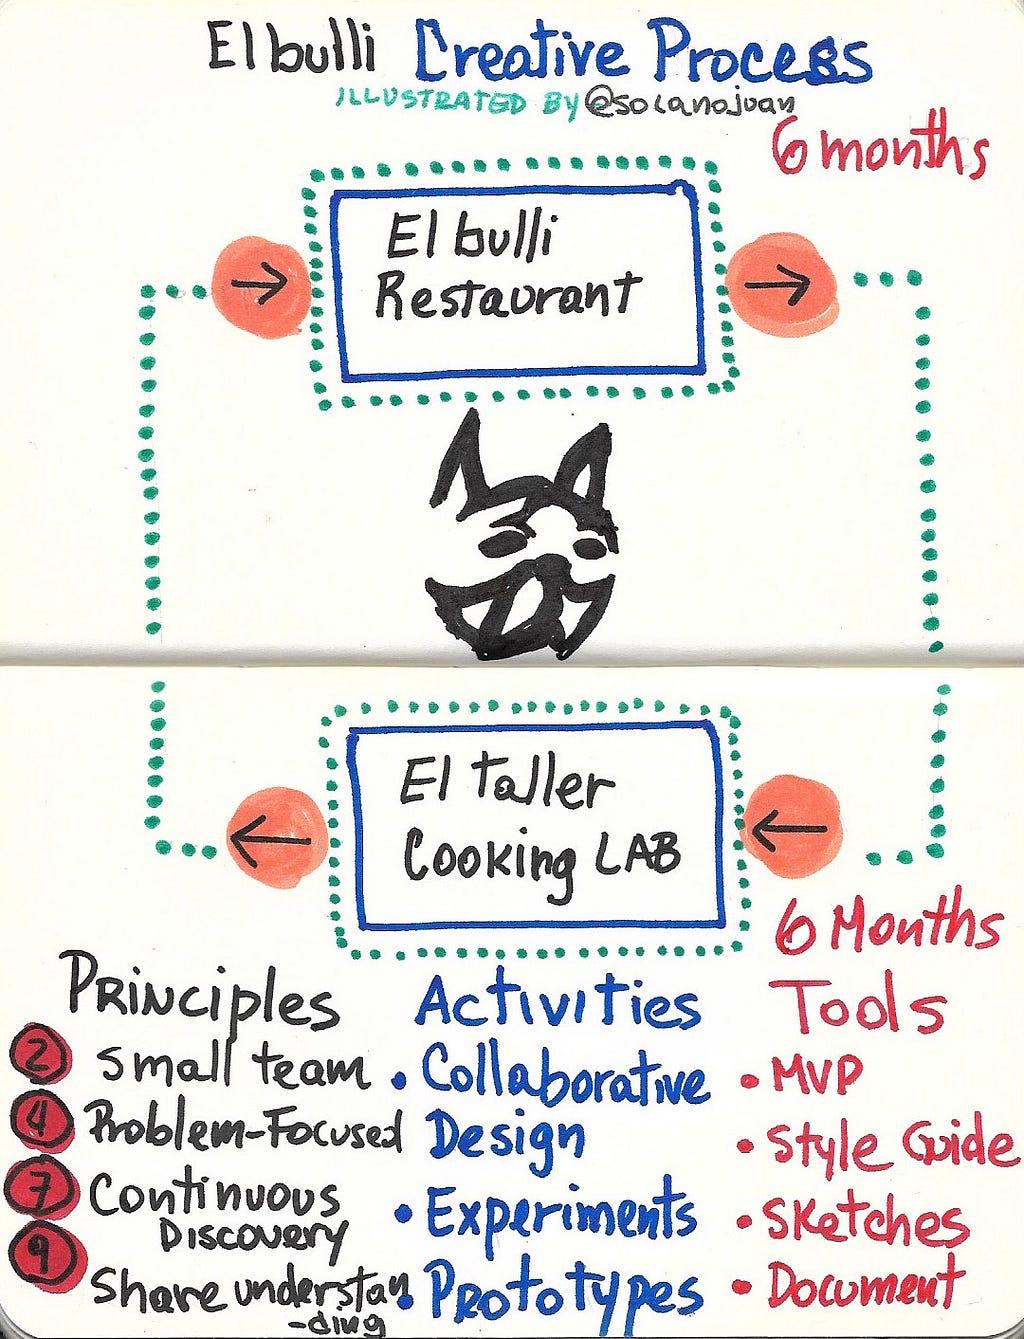 El bulli Creative Process
ILLUSTRATED BY @solanojuan
6 months
El bulli
Restaurant
El taller
Cooking LAB
6 Months
Principles
2 small team
4 Problem-Focused
7 Continuous
Discovery
9 Share understan
-ding
Activities
• Collaborative
Design
• Experiments
• Prototypes
Tools
• MVP
• Style Guide
• Sketches
• Document